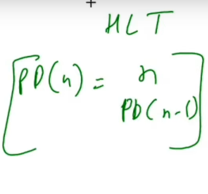 HLT
PD(n) = n
PD(n-1)